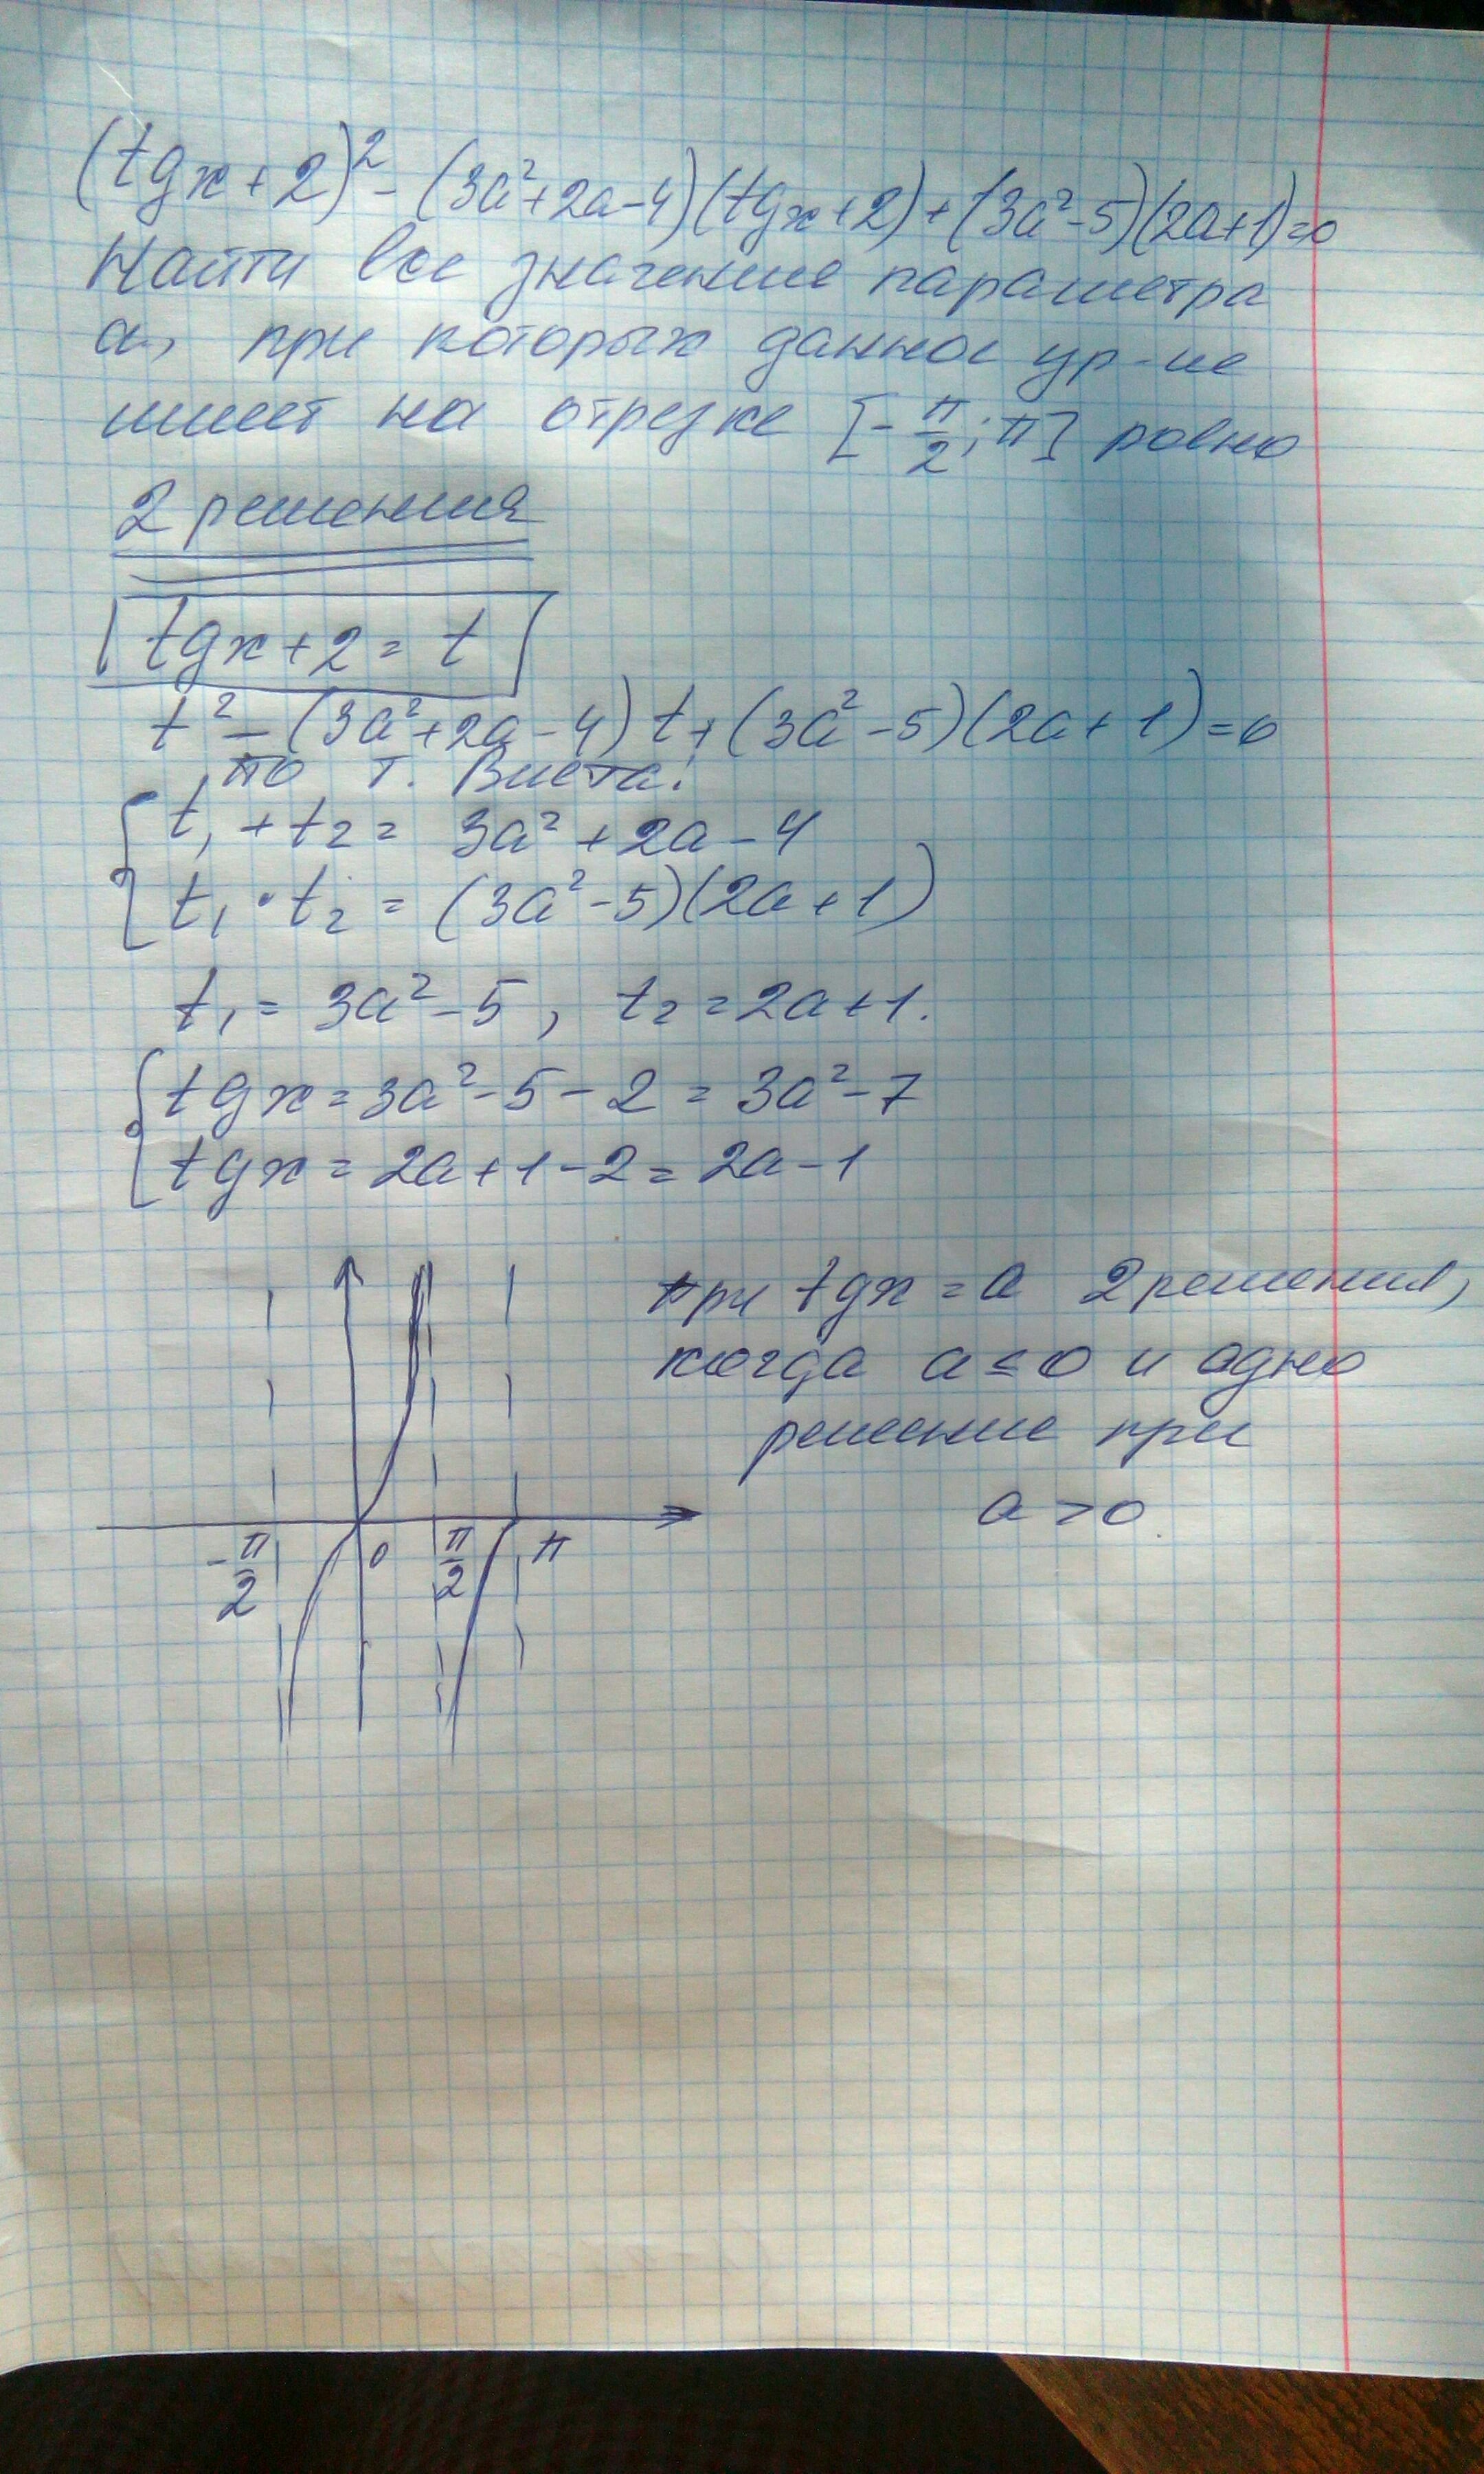 (tgx+2)² - (3a²+2a-4)(tgx+2)+(3a²-5)(2a+1)=0
Найти все значение параметра
a, при которых данное ур-ие
имеет на отрезке [-π/2; π] ровно
2 решения
tgx+2=t
t² - (3a²+2a-4)t+(3a²-5)(2a+1)=0
по т. Виета:
t₁+t₂= 3a²+2a-4
t₁·t₂=(3a²-5)(2a+1)
t₁= 3a²-5, t₂=2a+1.
tgx=3a²-5-2=3a²-7
tgx=2a+1-2=2a-1
при tgx=a 2 решения,
когда a≤0 и одно
решение при
a>0.
-π/2 0 π/2 π